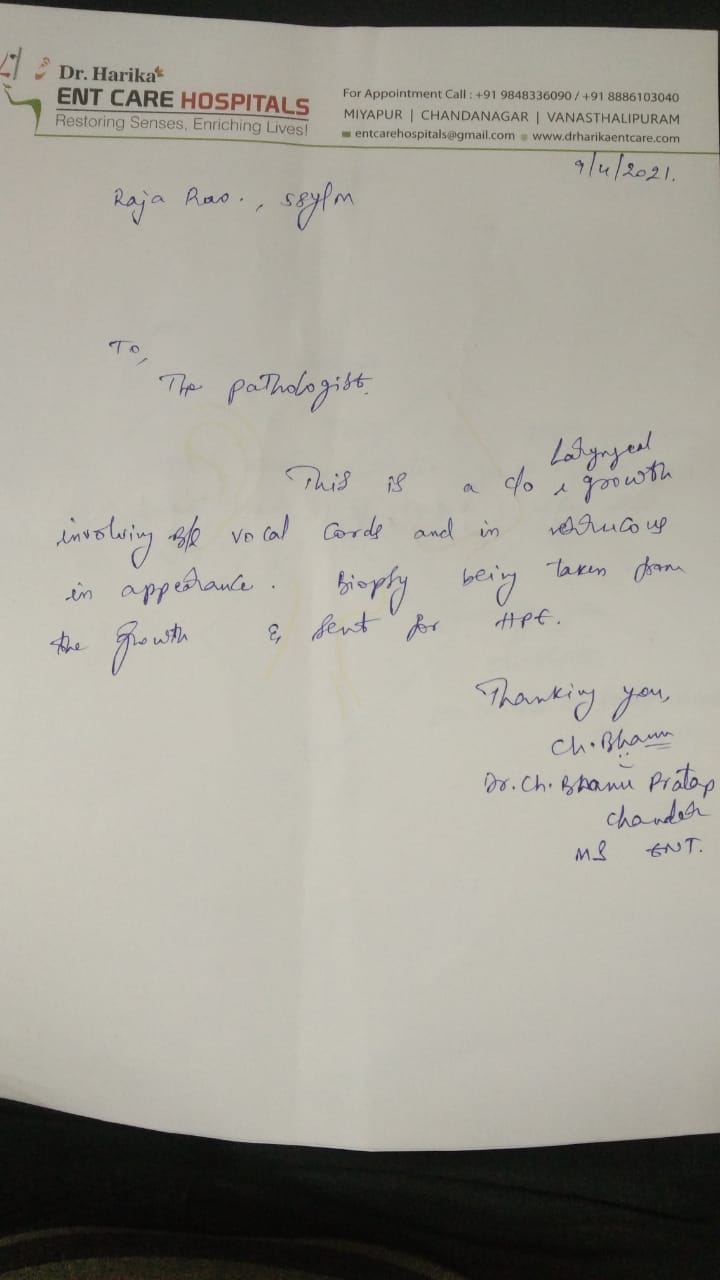 Dr. Harika
ENT CARE HOSPITALS
Restoring Senses, Enriching Lives!
For Appointment Call : +91 9848336090 / +91 8886103040
MIYAPUR | CHANDANAGAR | VANASTHALIPURAM
entcarehospitals@gmail.com www.drharikaentcare.com
9/4/2021.
Raja Rao., 58y/M
To,
The pathologist.
Laryngeal
This is a c/o growth
involving B/L vocal cords and in verrucous
in appearance. Biopsy being taken from
the growth & sent for HPE.
Thanking you,
Ch. Bhanu
Dr. Ch. Bhanu Pratap
Chander
MS ENT.